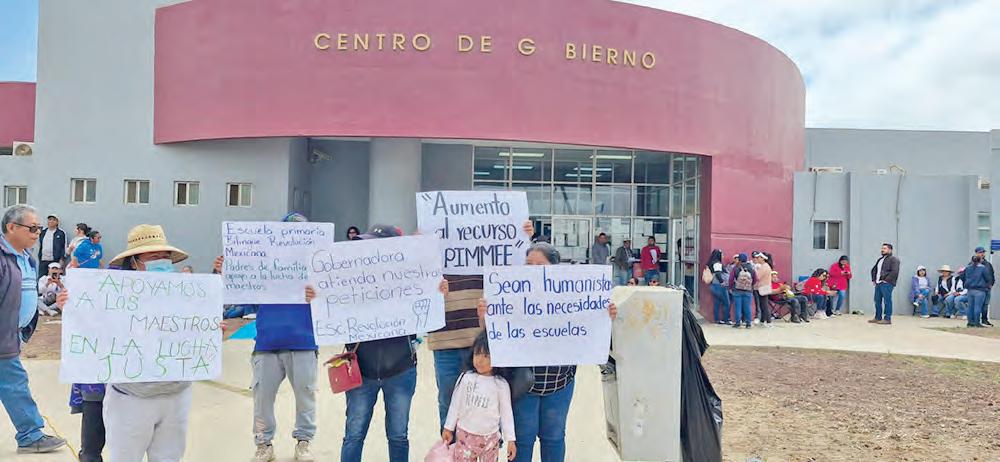 CENTRO DE G BIERNO
APOYAMOS
A LOS
MAESTROS
EN LA LUCHA
JUSTA
Escuela primaria
Bilingüe Revolución
Mexicana
Padres de familia
apoyo a la lucha de
maestros
Gobernadora
atienda nuestra
peticiones
Esc. Revolución
Mexicana
"Aumento
al recurso
PIMMEE"
Sean humanista
ante las necesidades
de las escuelas
BE
KIND